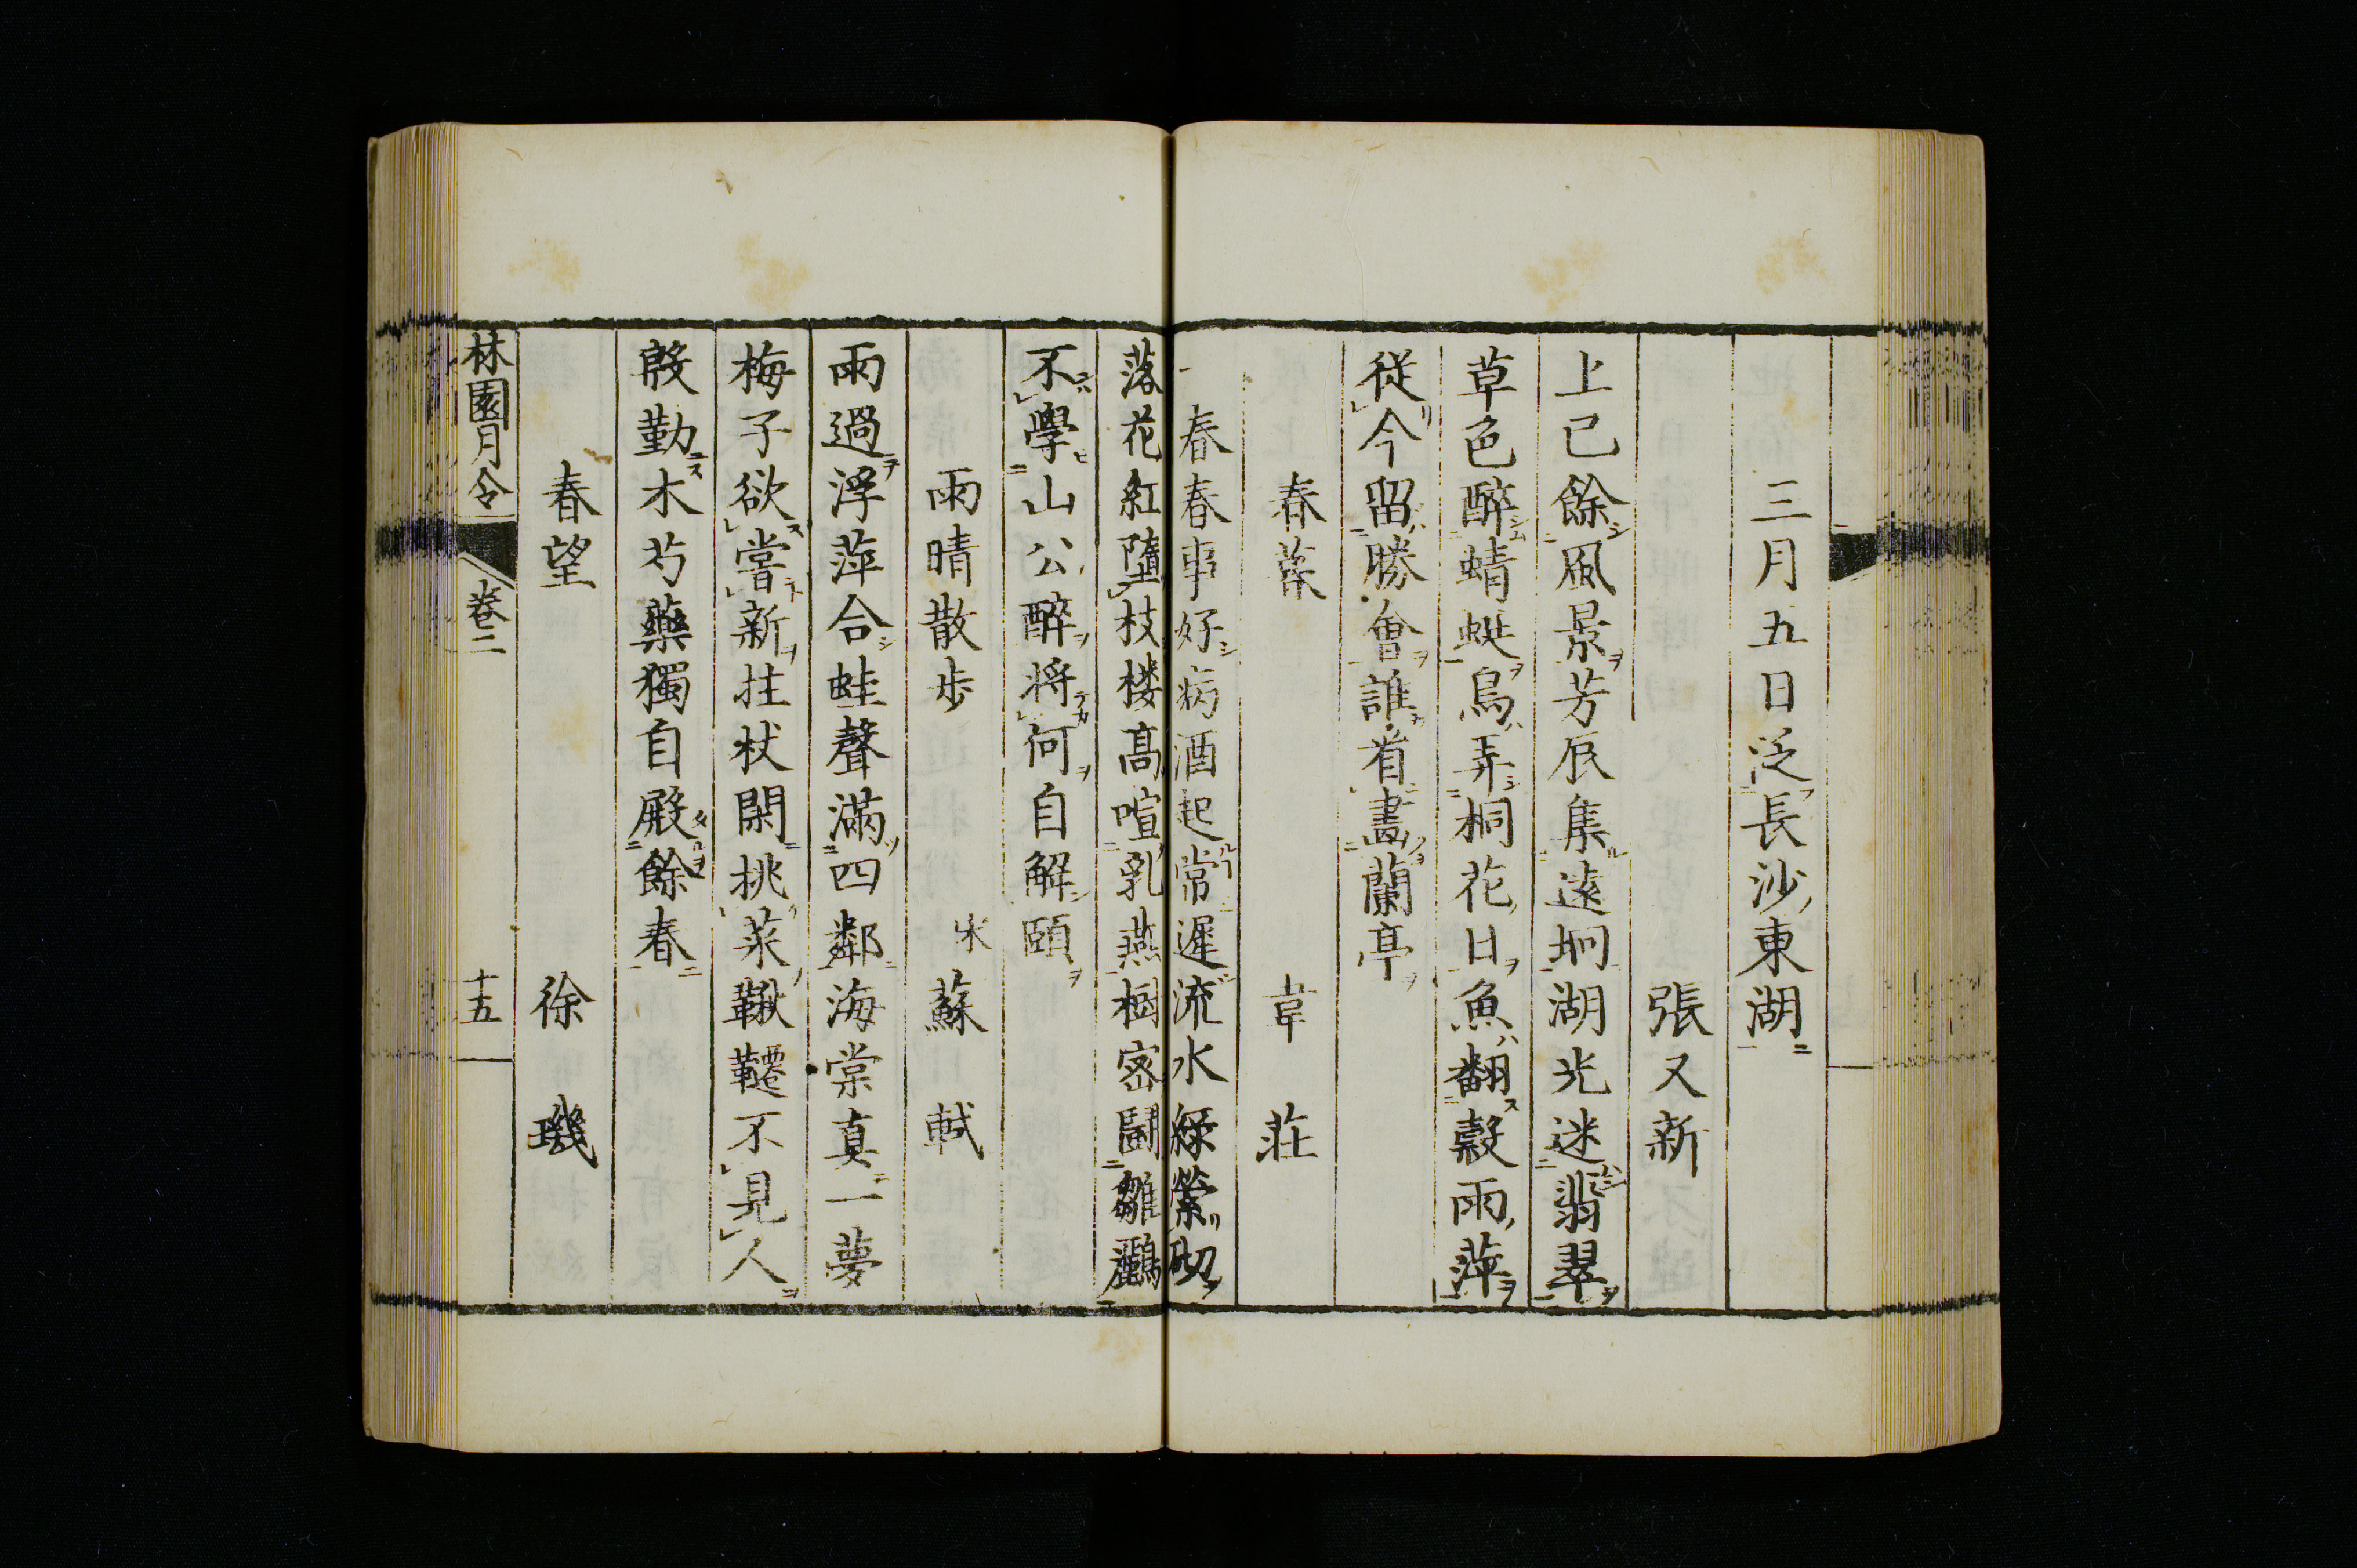 三月五日泛長沙東湖
張又新
上已餘風景芳辰集遠坰湖光迷翡翠
草色醉蜻蜓鳥弄桐花日魚翻穀雨萍
從今留勝會誰看畫蘭亭
春暮 韋荘
一春春事好病酒起常遲流水緑縈砌
落花紅墮枝楼高喧乳燕樹密鬪雛鸝
不學山公醉将何自解頤
雨晴散歩 宋 蘇軾
雨過浮萍合蛙聲滿四鄰海棠真一夢
梅子欲嘗新拄杖閑挑菜鞦韆不見人
殷勤木芍藥獨自殿餘春
春望 徐璣
林園月令 卷二 十五